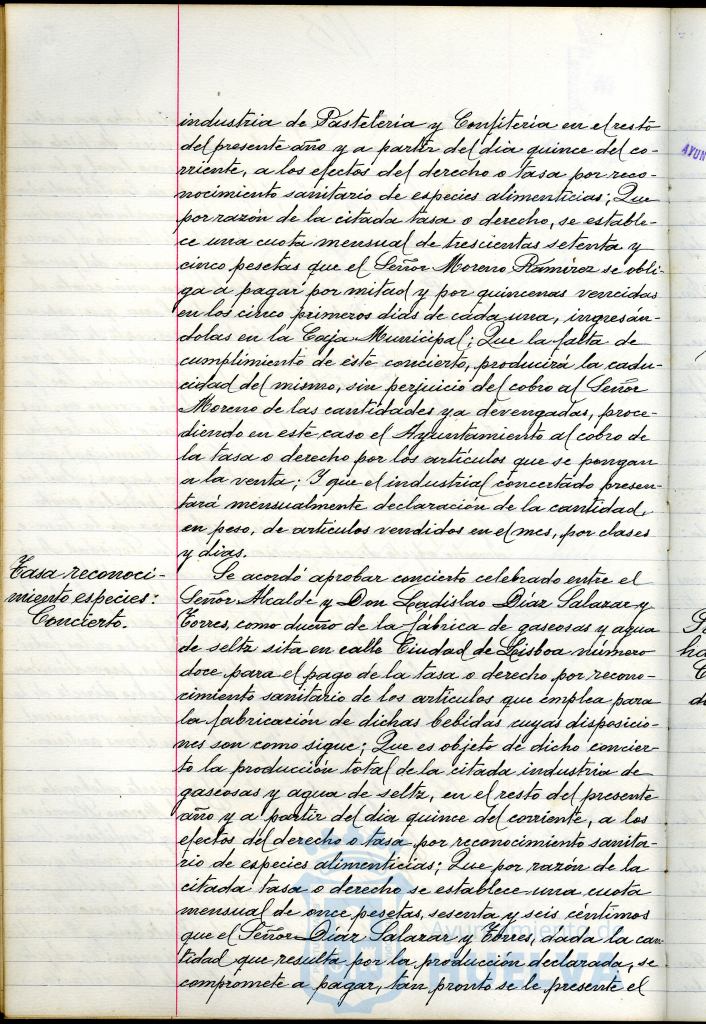 industria de Pastelería y Confitería en el resto
del presente año y a partir del dia quince del co-
rriente, a los efectos del derecho o tasa por reco-
nocimiento sanitario de especies alimenticias; Que
por razón de la citada tasa o derecho, se estable-
ce una cuota mensual de trescientas setenta y
cinco pesetas que el Señor Moreno Ramirez se obli-
ga a pagar por mitad y por quincenas vencidas
en los cinco primeros dias de cada una, ingresán-
dolas en la Caja Municipal; Que la falta de
cumplimiento de este concierto, producirá la cadu-
cidad del mismo, sin perjuicio del cobro al Señor
Moreno de las cantidades ya devengadas, proce-
diendo en este caso el Ayuntamiento al cobro de
la tasa o derecho por los artículos que se pongan
a la venta; Y que el industrial concertado presen-
tará mensualmente declaración de la cantidad,
en peso, de artículos vendidos en el mes, por clases
y dias.
Tasa reconoci-
miento especies:
Concierto.
Se acordó aprobar concierto celebrado entre el
Señor Alcalde y Don Ladislao Díaz Salazar y
Torres, como dueño de la fábrica de gaseosas y agua
de seltz sita en calle Ciudad de Lisboa número
doce para el pago de la tasa o derecho por recono-
cimiento sanitario de los artículos que emplea para
la fabricación de dichas bebidas cuyas disposicio-
nes son como sigue; Que es objeto de dicho concier-
to la producción total de la citada industria de
gaseosas y agua de seltz, en el resto del presente
año y a partir del dia quince del corriente, a los
efectos del derecho o tasa por reconocimiento sanita-
rio de especies alimenticias; Que por razón de la
citada tasa o derecho se establece una cuota
mensual de once pesetas, sesenta y seis céntimos
que el Señor Díaz Salazar y Torres, dada la can-
tidad que resulta por la producción declarada, se
compromete a pagar, tan pronto se le presente el
Ayuntamiento de
HUELVA
AYUN